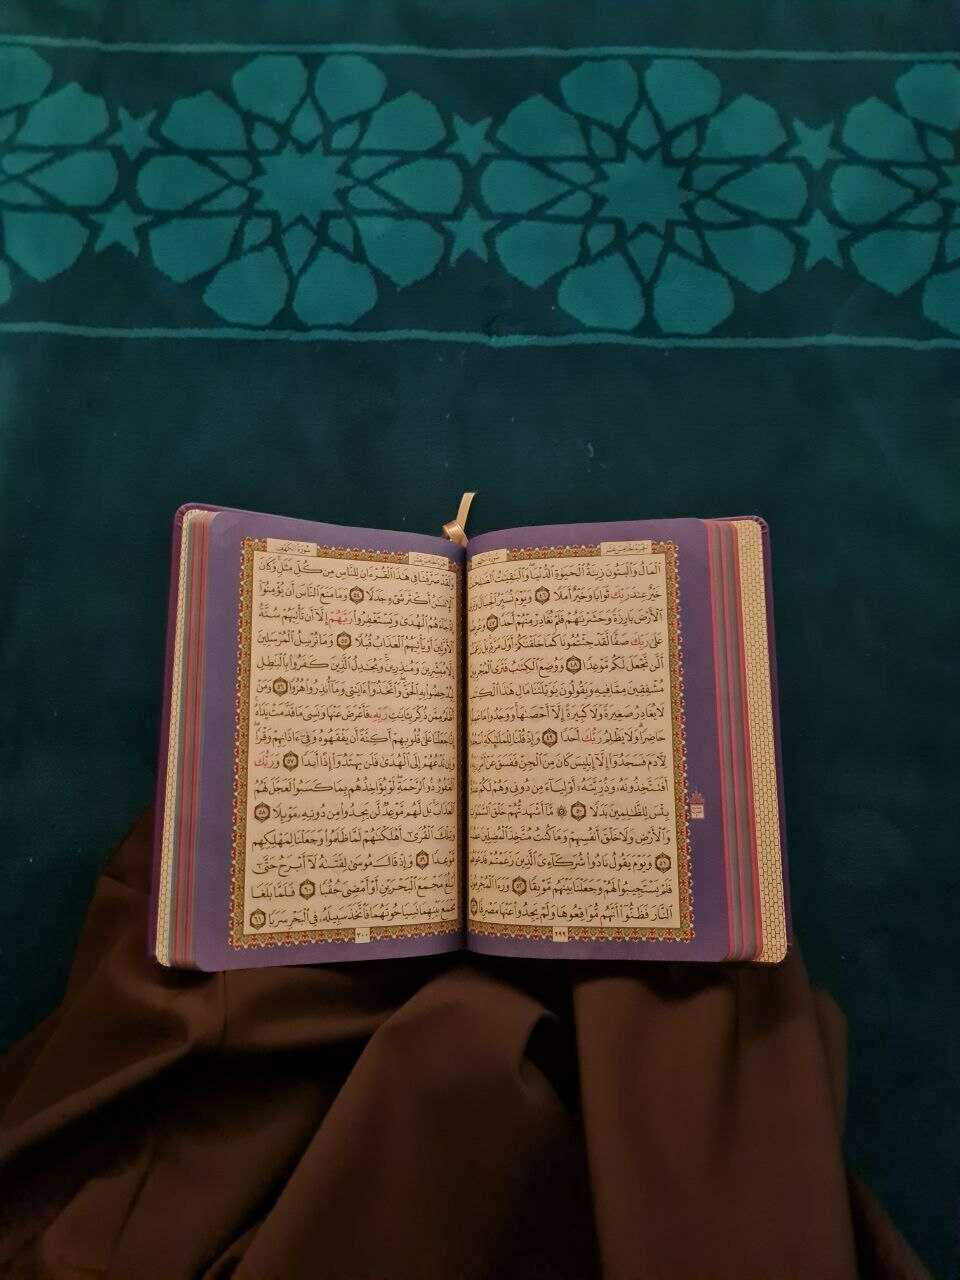 سورة الكهف
الجزء الخامس عشر
ٱلْمَالُ وَٱلْبَنُونَ زِينَةُ ٱلْحَيَوٰةِ ٱلدُّنْيَا وَٱلْبَٰقِيَٰتُ ٱلصَّٰلِحَٰتُ
خَيْرٌ عِندَ رَبِّكَ ثَوَابًا وَخَيْرٌ أَمَلًا ٤٦ وَيَوْمَ نُسَيِّرُ ٱلْجِبَالَ وَتَرَى
ٱلْأَرْضَ بَارِزَةً وَحَشَرْنَٰهُمْ فَلَمْ نُغَادِرْ مِنْهُمْ أَحَدًا ٤٧ وَعُرِضُوا۟
عَلَىٰ رَبِّكَ صَفًّا لَّقَدْ جِئْتُمُونَا كَمَا خَلَقْنَٰكُمْ أَوَّلَ مَرَّةٍۭ بَلْ زَعَمْتُمْ
أَلَّن نَّجْعَلَ لَكُم مَّوْعِدًا ٤٨ وَوُضِعَ ٱلْكِتَٰبُ فَتَرَى ٱلْمُجْرِمِينَ
مُشْفِقِينَ مِمَّا فِيهِ وَيَقُولُونَ يَٰوَيْلَتَنَا مَالِ هَٰذَا ٱلْكِتَٰبِ
لَا يُغَادِرُ صَغِيرَةً وَلَا كَبِيرَةً إِلَّآ أَحْصَىٰهَا وَوَجَدُوا۟ مَا عَمِلُوا۟
حَاضِرًا وَلَا يَظْلِمُ رَبُّكَ أَحَدًا ٤٩ وَإِذْ قُلْنَا لِلْمَلَٰٓئِكَةِ ٱسْجُدُوا۟
لِءَادَمَ فَسَجَدُوٓا۟ إِلَّآ إِبْلِيسَ كَانَ مِنَ ٱلْجِنِّ فَفَسَقَ عَنْ أَمْرِ رَبِّهِۦٓ
أَفَتَتَّخِذُونَهُۥ وَذُرِّيَّتَهُۥٓ أَوْلِيَآءَ مِن دُونِى وَهُمْ لَكُمْ عَدُوٌّۢ
بِئْسَ لِلظَّٰلِمِينَ بَدَلًا ٥٠ ۞ مَّآ أَشْهَدتُّهُمْ خَلْقَ ٱلسَّمَٰوَٰتِ
وَٱلْأَرْضِ وَلَا خَلْقَ أَنفُسِهِمْ وَمَا كُنتُ مُتَّخِذَ ٱلْمُضِلِّينَ عَضُدًا
٥١ وَيَوْمَ يَقُولُ نَادُوا۟ شُرَكَآءِىَ ٱلَّذِينَ زَعَمْتُمْ فَدَعَوْهُمْ
فَلَمْ يَسْتَجِيبُوا۟ لَهُمْ وَجَعَلْنَا بَيْنَهُم مَّوْبِقًا ٥٢ وَرَءَا ٱلْمُجْرِمُونَ
ٱلنَّارَ فَظَنُّوٓا۟ أَنَّهُم مُّوَاقِعُوهَا وَلَمْ يَجِدُوا۟ عَنْهَا مَصْرِفًا ٥٣
٢٩٩
الجزء الخامس عشر
سورة الكهف
وَلَقَدْ صَرَّفْنَا فِى هَٰذَا ٱلْقُرْءَانِ لِلنَّاسِ مِن كُلِّ مَثَلٍ وَكَانَ
ٱلْإِنسَٰنُ أَكْثَرَ شَىْءٍ جَدَلًا ٥٤ وَمَا مَنَعَ ٱلنَّاسَ أَن يُؤْمِنُوٓا۟
إِذْ جَآءَهُمُ ٱلْهُدَىٰ وَيَسْتَغْفِرُوا۟ رَبَّهُمْ إِلَّآ أَن تَأْتِيَهُمْ سُنَّةُ
ٱلْأَوَّلِينَ أَوْ يَأْتِيَهُمُ ٱلْعَذَابُ قُبُلًا ٥٥ وَمَا نُرْسِلُ ٱلْمُرْسَلِينَ
إِلَّا مُبَشِّرِينَ وَمُنذِرِينَ وَيُجَٰدِلُ ٱلَّذِينَ كَفَرُوا۟ بِٱلْبَٰطِلِ
لِيُدْحِضُوا۟ بِهِ ٱلْحَقَّ وَٱتَّخَذُوٓا۟ ءَايَٰتِى وَمَآ أُنذِرُوا۟ هُزُوًا ٥٦ وَمَنْ
أَظْلَمُ مِمَّن ذُكِّرَ بِـَٔايَٰتِ رَبِّهِۦ فَأَعْرَضَ عَنْهَا وَنَسِىَ مَا قَدَّمَتْ يَدَاهُ
إِنَّا جَعَلْنَا عَلَىٰ قُلُوبِهِمْ أَكِنَّةً أَن يَفْقَهُوهُ وَفِىٓ ءَاذَانِهِمْ وَقْرًا
وَإِن تَدْعُهُمْ إِلَى ٱلْهُدَىٰ فَلَن يَهْتَدُوٓا۟ إِذًا أَبَدًا ٥٧ وَرَبُّكَ
ٱلْغَفُورُ ذُو ٱلرَّحْمَةِ لَوْ يُؤَاخِذُهُم بِمَا كَسَبُوا۟ لَعَجَّلَ لَهُمُ
ٱلْعَذَابَ بَل لَّهُم مَّوْعِدٌ لَّن يَجِدُوا۟ مِن دُونِهِۦ مَوْئِلًا ٥٨
وَتِلْكَ ٱلْقُرَىٰٓ أَهْلَكْنَٰهُمْ لَمَّا ظَلَمُوا۟ وَجَعَلْنَا لِمَهْلِكِهِم
مَّوْعِدًا ٥٩ وَإِذْ قَالَ مُوسَىٰ لِفَتَىٰهُ لَآ أَبْرَحُ حَتَّىٰٓ
أَبْلُغَ مَجْمَعَ ٱلْبَحْرَيْنِ أَوْ أَمْضِىَ حُقُبًا ٦٠ فَلَمَّا بَلَغَا
مَجْمَعَ بَيْنِهِمَا نَسِيَا حُوتَهُمَا فَٱتَّخَذَ سَبِيلَهُۥ فِى ٱلْبَحْرِ سَرَبًا ٦١
٣٠٠